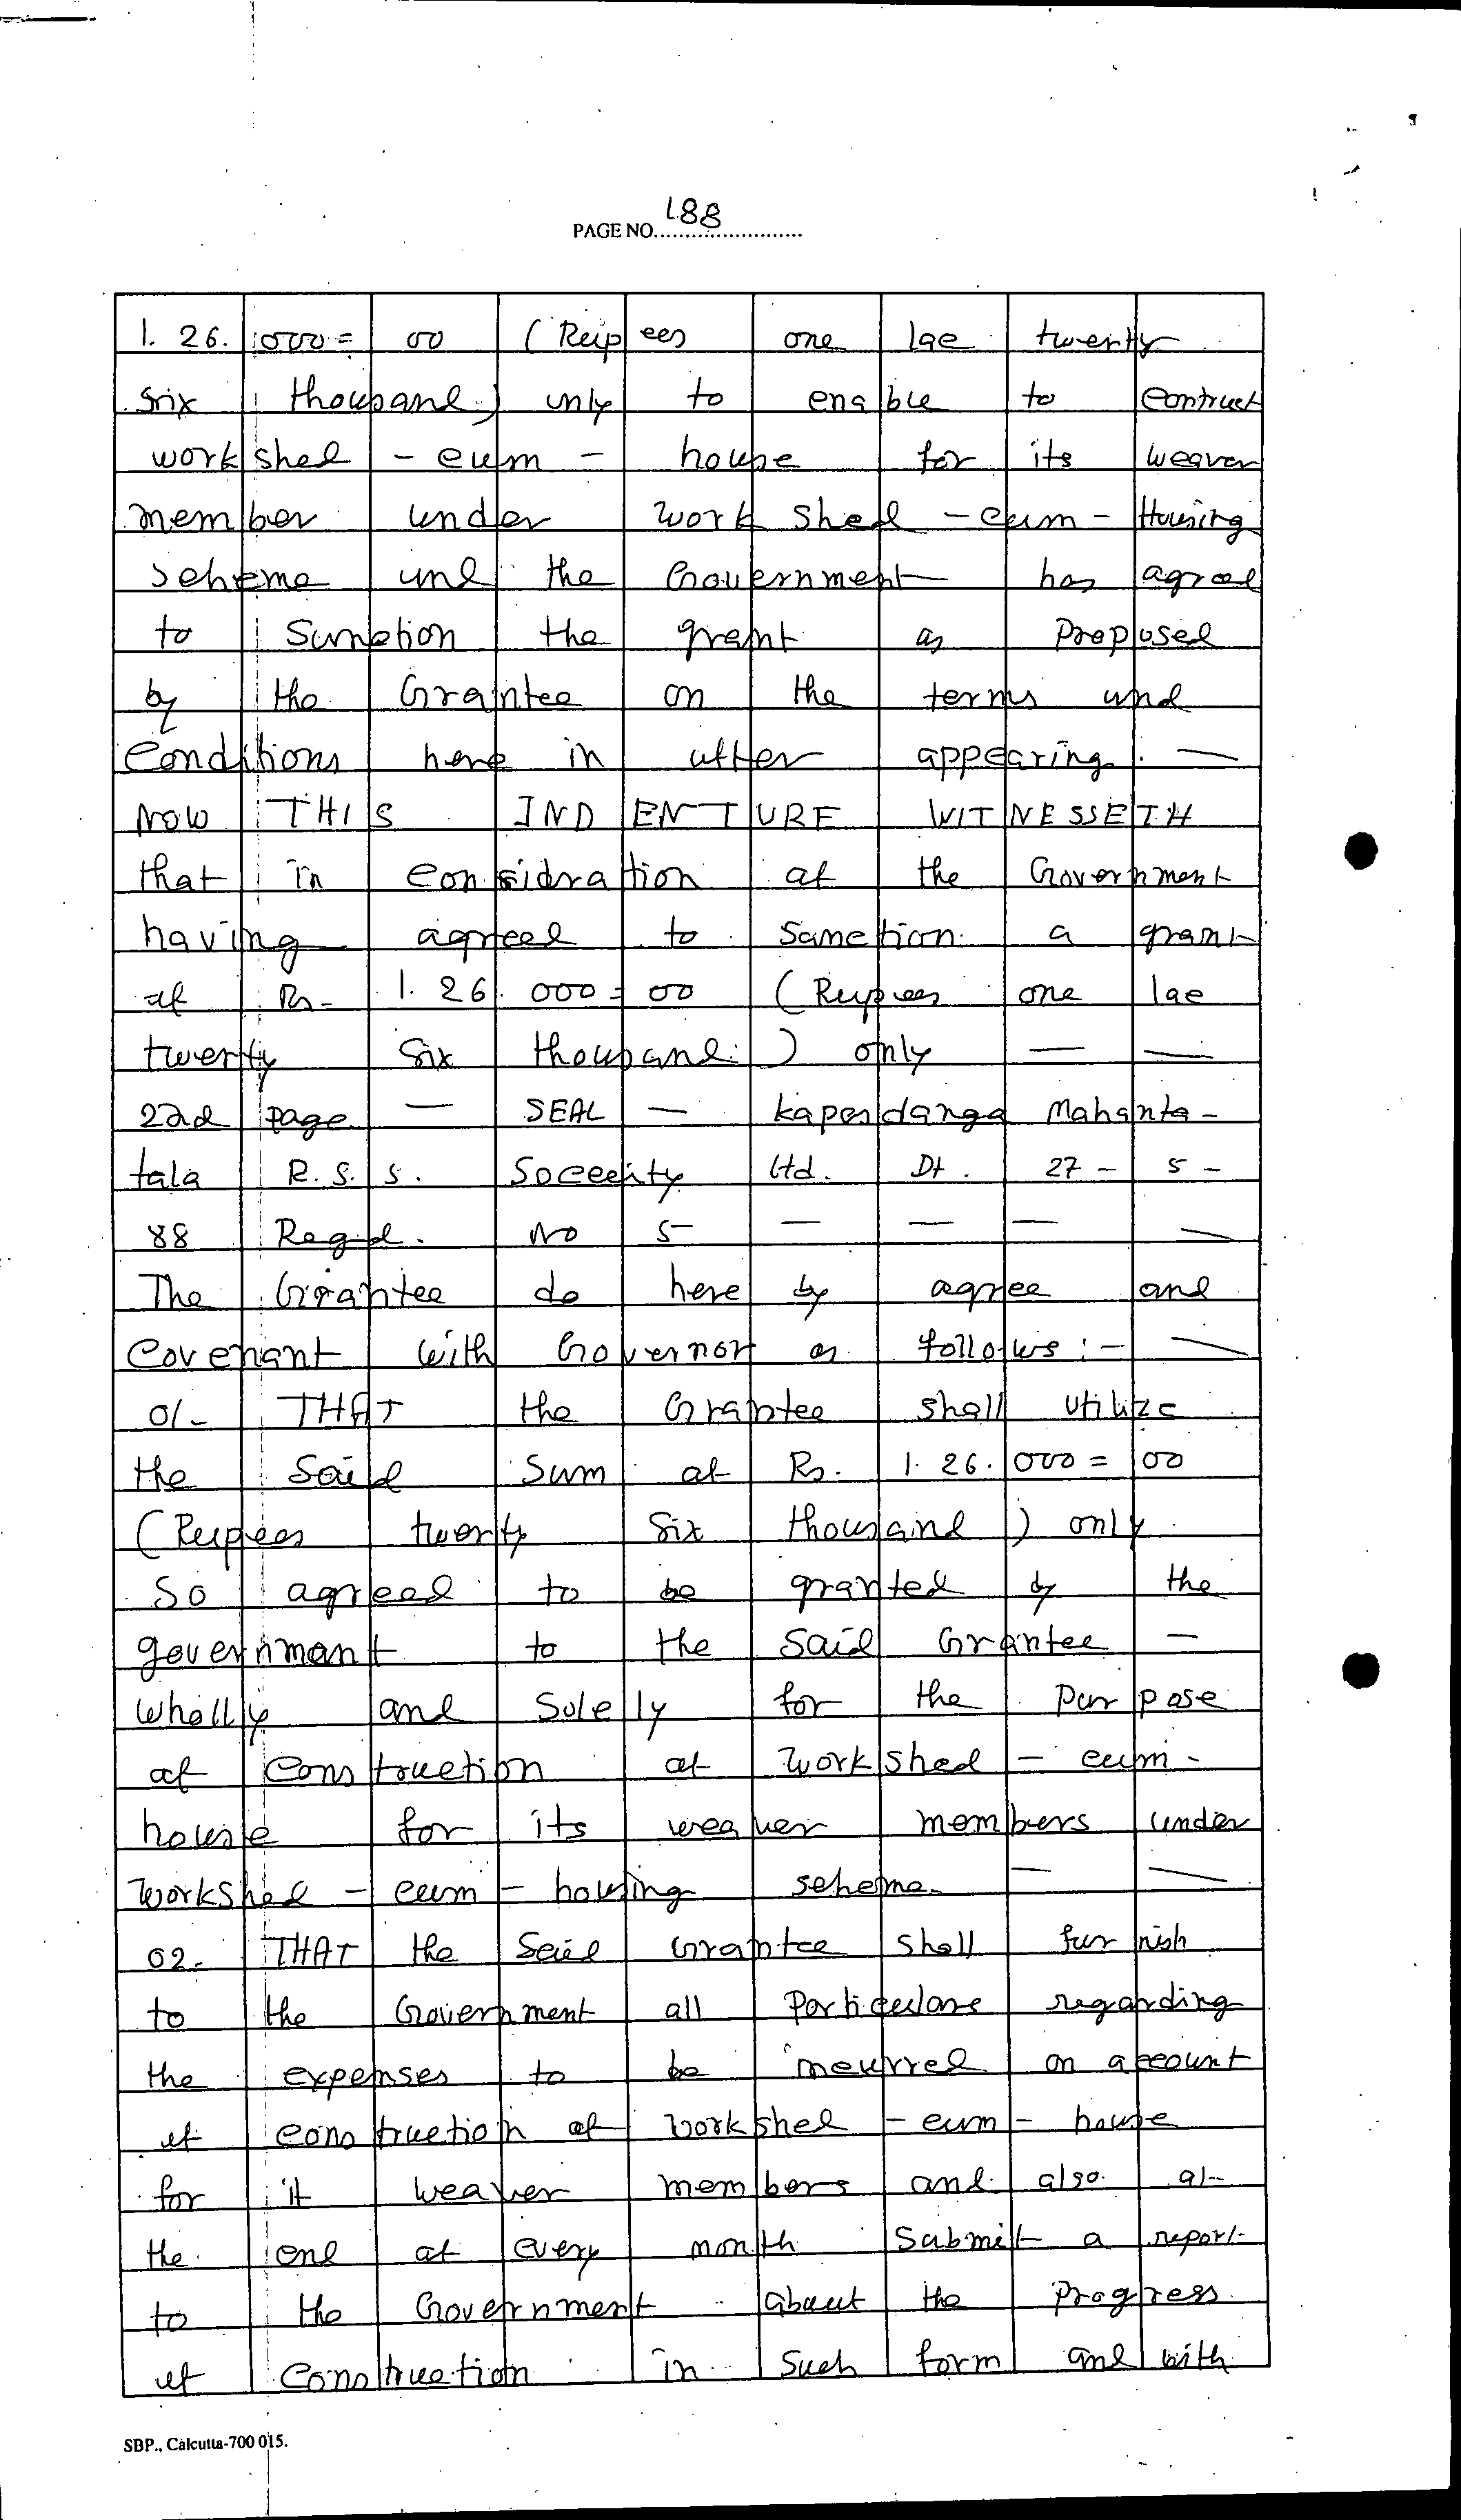 PAGE NO. 188
1. 26. 000 = 00 (Rupees one lac twenty
six thousand) only to enable to contruct
workshed - cum - house for its weaver
member under work shed - cum - Housing
scheme and the Government has agreed
to Sanction the grant as Proposed
by the Grantee on the terms and
conditions here in after appearing. —
NOW THIS INDENTURE WITNESSETH
that in considration of the Government
having agreed to sanction a grant
of Rs- 1. 26. 000 = 00 (Rupees one lac
twenty Six thousand.) only — —
22nd page — SEAL — kapasdanga Mahanta -
tala R. S. S. Soceeity Ltd. Dt. 27 - 5 -
88 Regd. No 5 — — — —
The Grantee do here by agree and
Covenant with Governor as follows :- —
01- THAT the Grantee shall utilize
the Said Sum of Rs. 1. 26. 000 = 00
(Rupees twenty Six thousand) only
So agreed to be granted by the
government to the Said Grantee —
wholly and Solelly for the Purpose
of construction of workshed - cum -
house for its weaver members under
workshed - cum - housing scheme. — —
02- THAT the Said Grantee shall furnish
to the Government all Particulars regarding
the expenses to be incurred on account
of construction of workshed - cum - house
for it weaver members and also at
the end of every month Submit a report
to the Government about the Progress
of Construction in Such form and with
SBP., Calcutta-700 015.